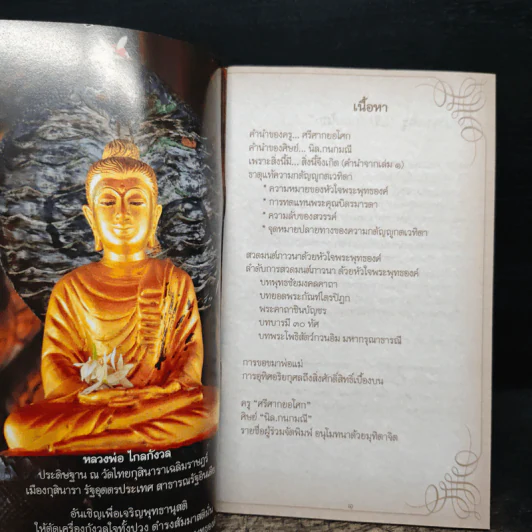 หลวงพ่อ ไกลกังวล
ประดิษฐาน ณ วัดไทยกุสินาราเฉลิมราชภูมิ์
เมืองกุสินารา รัฐอุตตรประเทศ สาธารณรัฐอินเดีย
อันเชิญเพื่อเจริญพุทธานุสติ
ให้ตัดเครื่องกังวลใจทั้งปวง ดำรงสัมมาสติเป็น
เนื้อหา
คำนำของครู... ศรีศากยอโศก
คำนำของศิษย์... นิด.กนกมณี
เพราะสิ่งนี้มี... สิ่งนี้จึงเกิด (คำนำจากเล่ม ๑)
ธาตุแท้ความกตัญญูกตเวทิตา
* ความหมายของหัวใจพระพุทธองค์
* การทดแทนพระคุณบิดรมารดา
* ความลับของสวรรค์
* จุดหมายปลายทางของความกตัญญูกตเวทิตา
สวดมนต์ภาวนาด้วยหัวใจพระพุทธองค์
ลำดับการสวดมนต์ภาวนา ด้วยหัวใจพระพุทธองค์
บทพุทธชัยมงคลคาถา
บทยอดพระกัณฑ์ไตรปิฎก
พระคาถาชินบัญชร
บทบารมี ๓๐ ทัศ
บทพระโพธิสัตว์กวนอิม มหากรุณาธารณี
การขอขมาพ่อแม่
การอุทิศอริยกุศลถึงสิ่งศักดิ์สิทธิ์เบื้องบน
ครู "ศรีศากยอโศก"
ศิษย์ "นิด.กนกมณี"
รายชื่อผู้ร่วมจัดพิมพ์ อนุโมทนาด้วยมุทิตาจิต